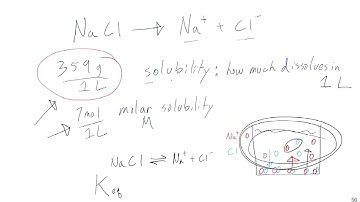 NaCl → Na⁺ + Cl⁻
359g
1L
solubility: how much dissolves in
1L
7mol
1L
molar solubility
M
NaCl ⇌ Na⁺ + Cl⁻
Na⁺
Cl⁻
Keq
56